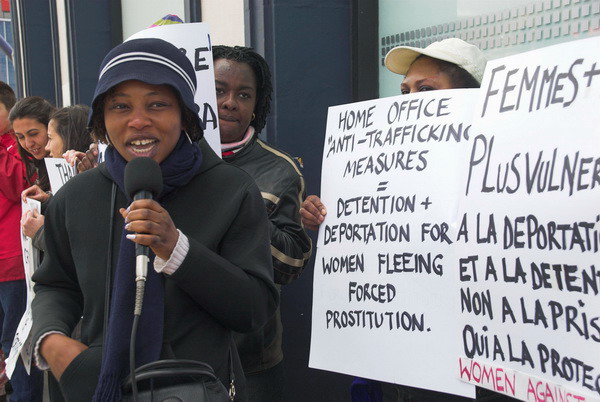 HOME OFFICE
"ANTI-TRAFFICKING
MEASURES
=
DETENTION +
DEPORTATION FOR
WOMEN FLEEING
FORCED
PROSTITUTION.
FEMMES +
PLUS VULNER
A LA DEPORTATI
ET A LA DETENT
NON A LA PRIS
OUI A LA PROTE
WOMEN AGAINST